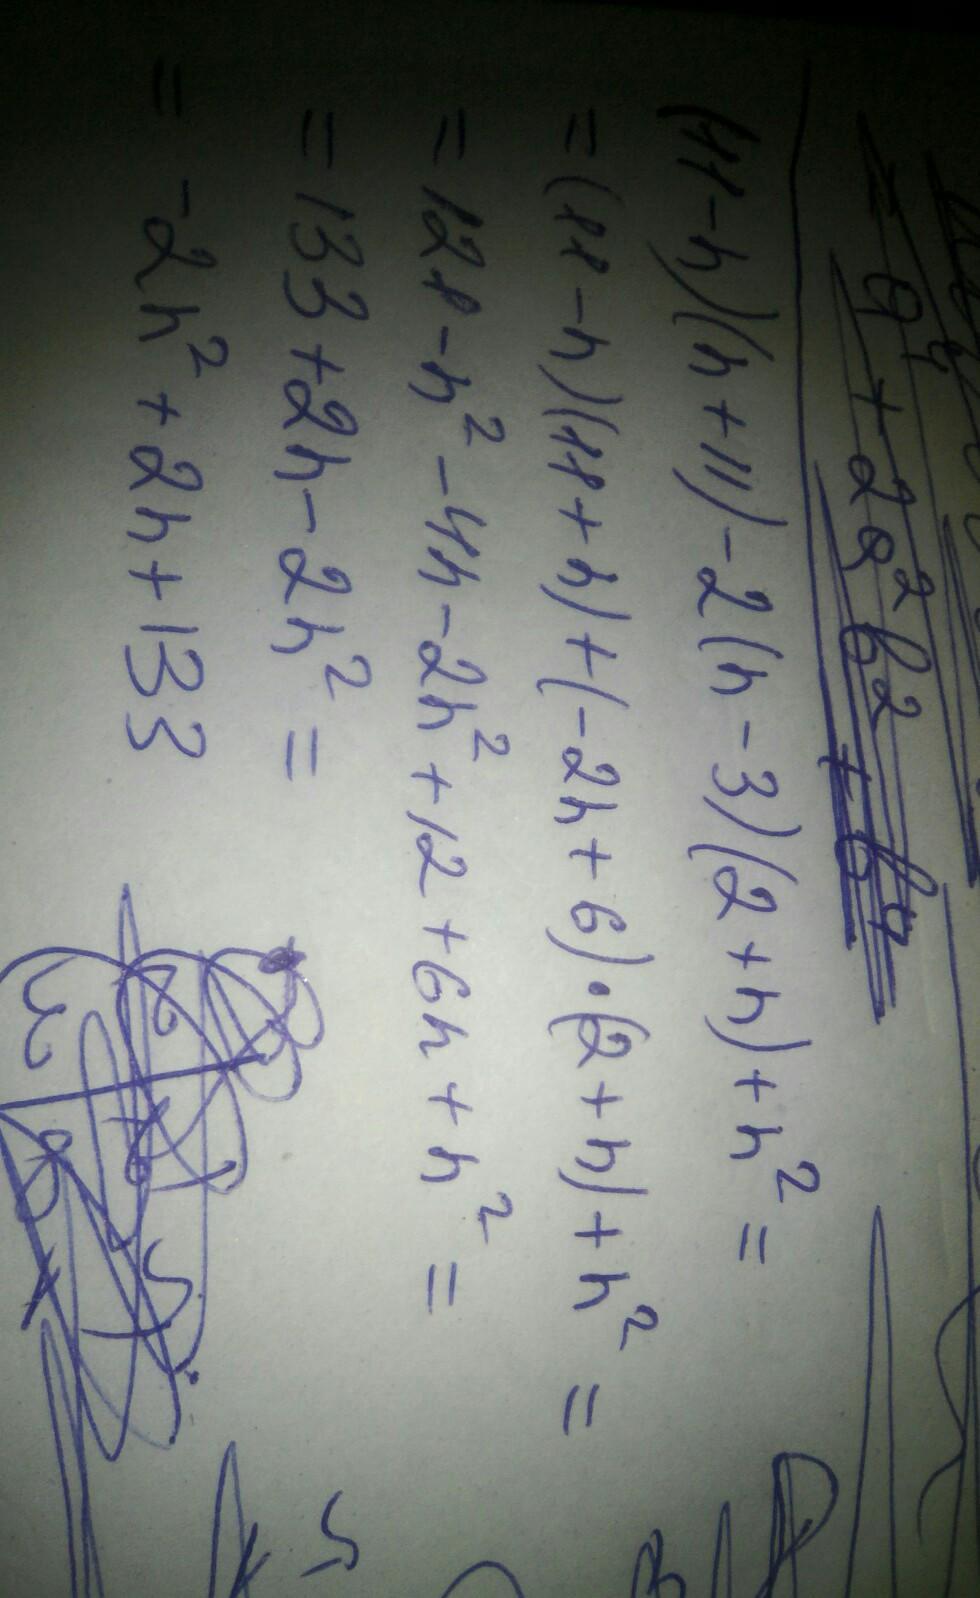 a⁴ + 2a²b² + b⁴
(11-n)(n+11)-2(n-3)(2+n)+n² =
= (11-n)(11+n)+(-2n+6)·(2+n)+n² =
= 121-n²-4n-2n²+12+6n+n² =
= 133+2n-2n² =
= -2n²+2n+133